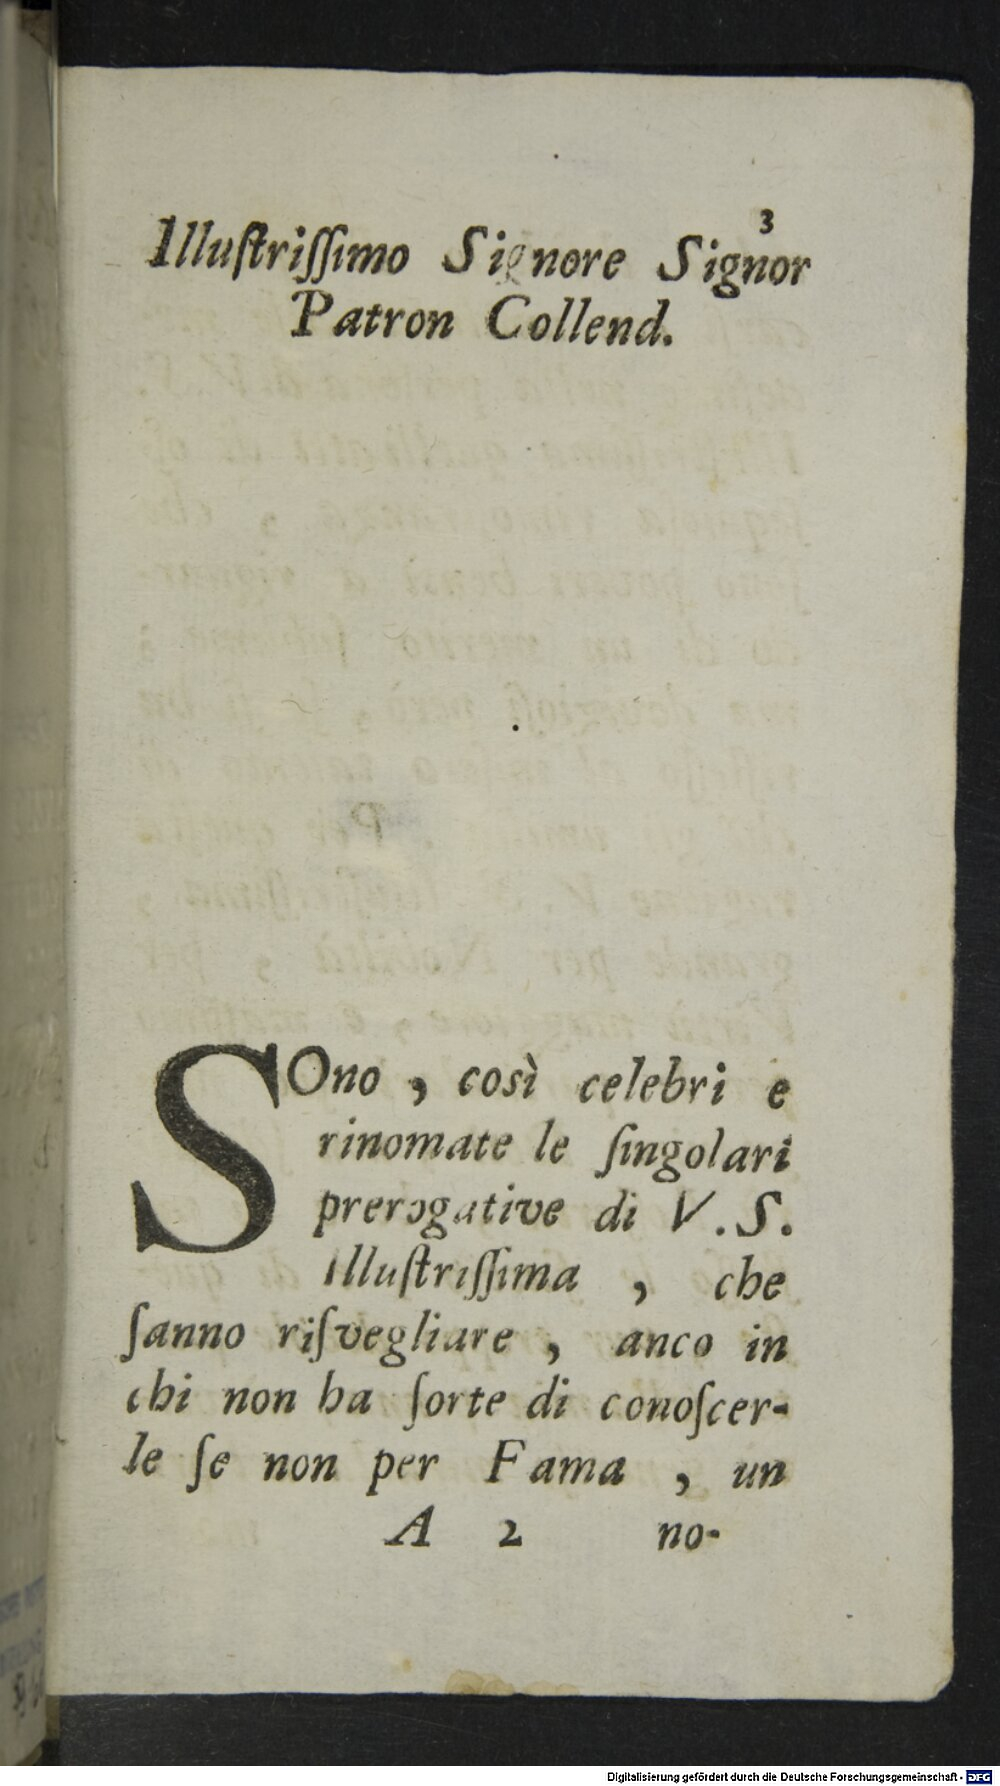 3
Illuſtriſſimo Signore Signor
Patron Collend.
SOno, così celebri e
rinomate le ſingolari
prerogative di V.S.
Illuſtriſſima, che
ſanno riſvegliare, anco in
chi non ha ſorte di conoſcer-
le ſe non per Fama, un
A 2 no-
Digitalisierung gefördert durch die Deutsche Forschungsgemeinschaft - DFG